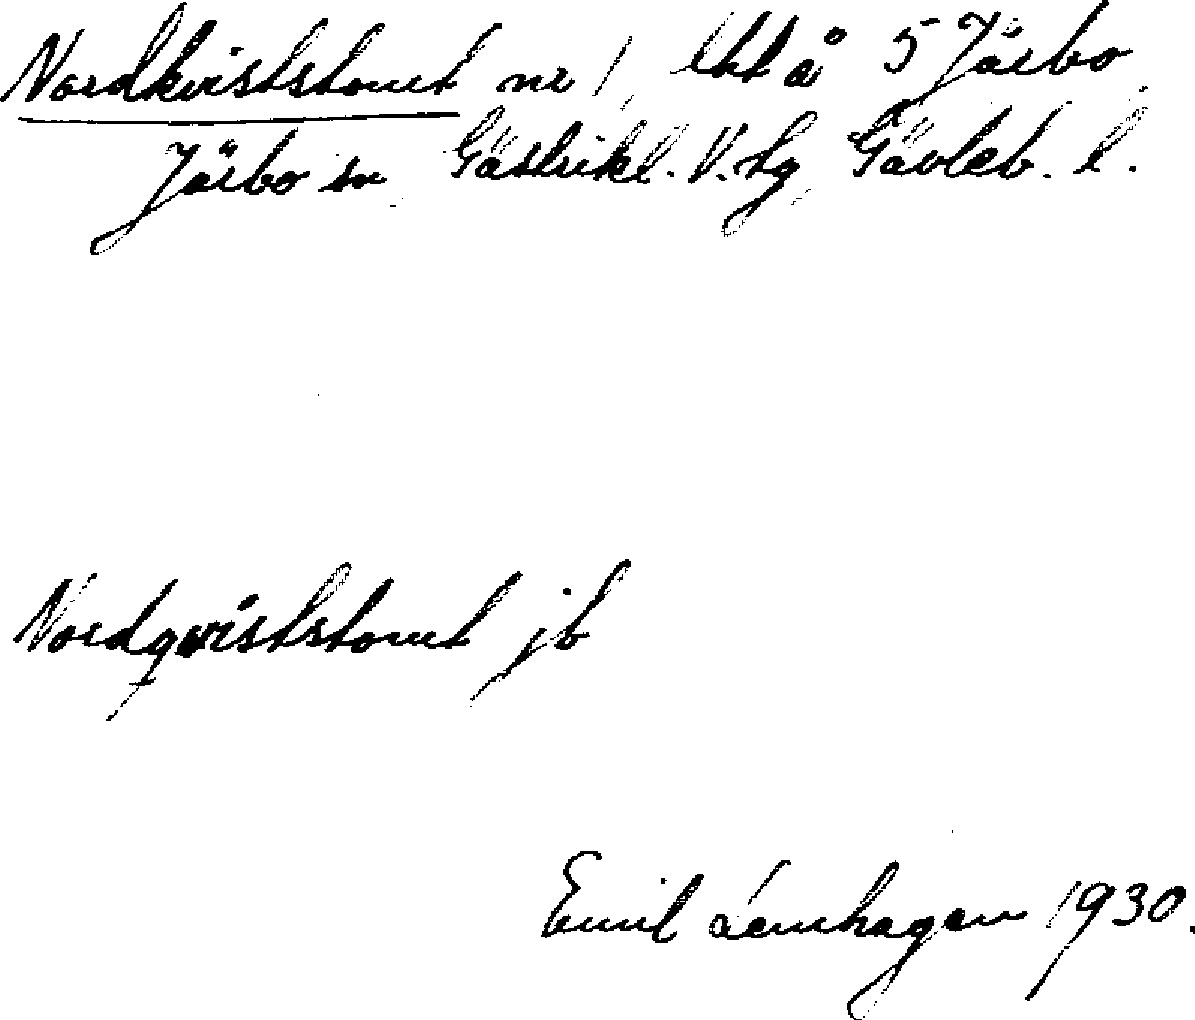 Nordkviststomt nr 1, lht å 5 Järbo,
Järbo sn Gästrikl. V. tg, Gävleb. l.
Nordqviststomt jb
Emil Lemhagen 1930.